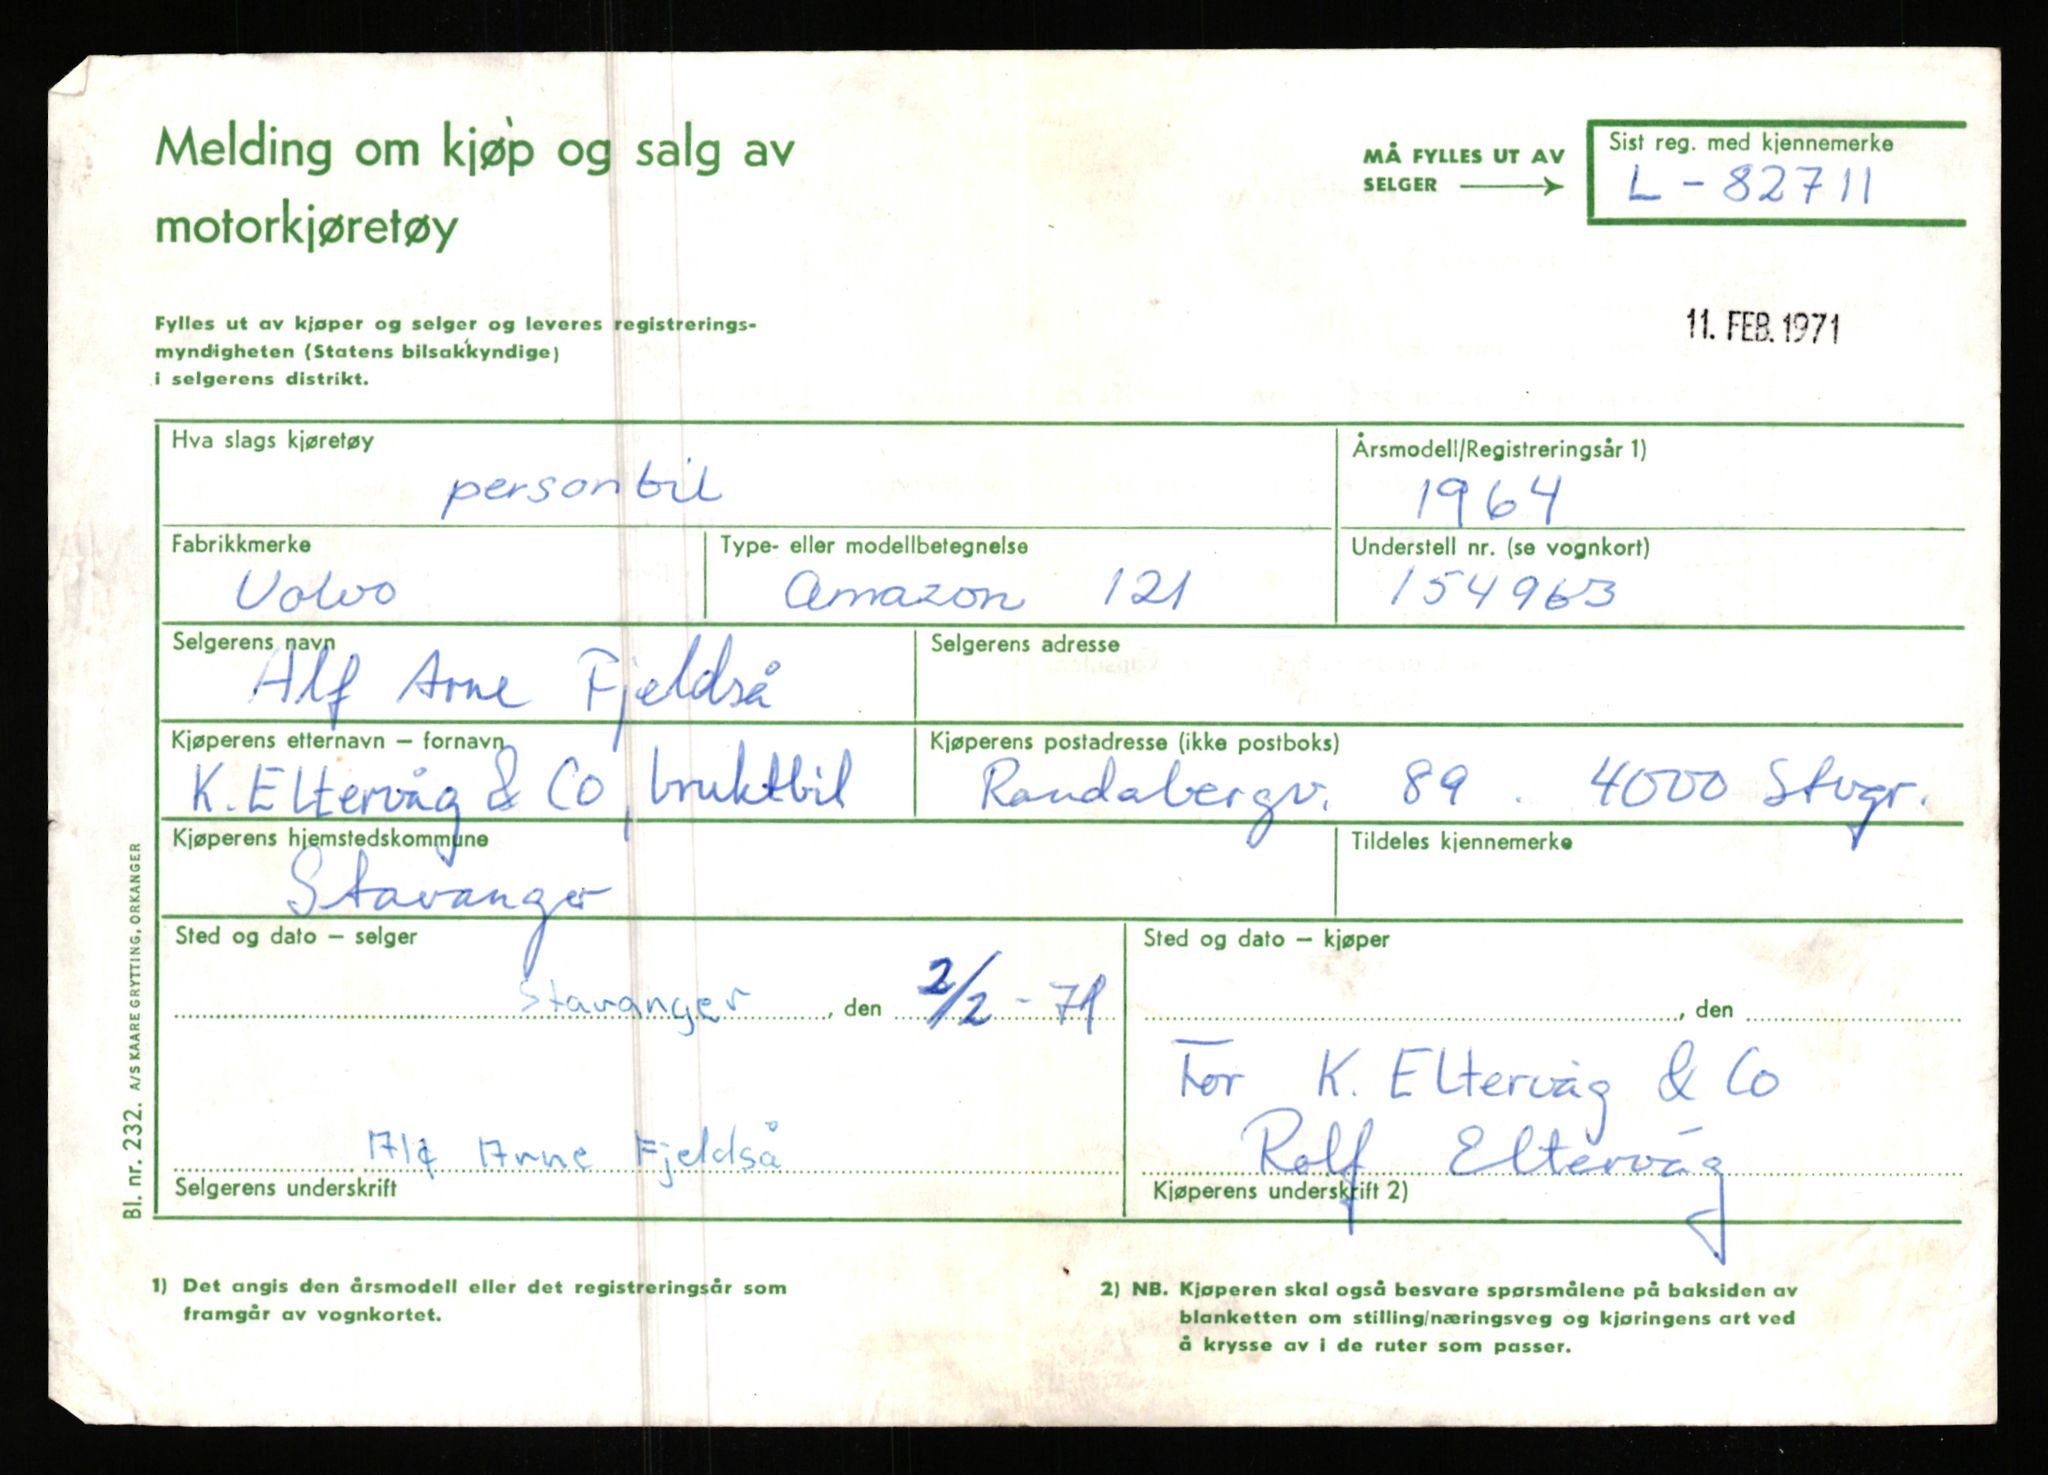 Melding om kjøp og salg av
motorkjøretøy
MÅ FYLLES UT AV
SELGER
Sist reg. med kjennemerke
L - 82711
11. FEB. 1971
Fylles ut av kjøper og selger og leveres registrerings-
myndigheten (Statens bilsakkyndige)
i selgerens distrikt.
Hva slags kjøretøy
personbil
Årsmodell/Registreringsår 1)
1964
Fabrikkmerke
Volvo
Type- eller modellbetegnelse
Amazon 121
Understell nr. (se vognkort)
154963
Selgerens navn
Alf Arne Fjeldså
Selgerens adresse
Kjøperens etternavn – fornavn
K. Eltervåg & Co, bruktbil
Kjøperens postadresse (ikke postboks)
Randabergv. 89. 4000 Stvgr.
Kjøperens hjemstedskommune
Stavanger
Tildeles kjennemerke
Sted og dato – selger
Stavanger, den 2/2 - 71
Sted og dato – kjøper
, den
For K. Eltervåg & Co
Alf Arne Fjeldså
Rolf Eltervåg
Selgerens underskrift
Kjøperens underskrift 2)
Bl. nr. 232. A/S KAARE GRYTTING, ORKANGER
1) Det angis den årsmodell eller det registreringsår som
framgår av vognkortet.
2) NB. Kjøperen skal også besvare spørsmålene på baksiden av
blanketten om stilling/næringsveg og kjøringens art ved
å krysse av i de ruter som passer.